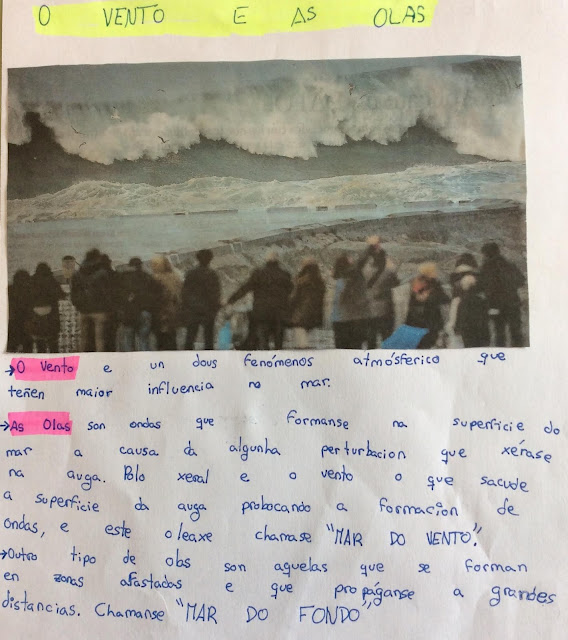 O VENTO E AS OLAS
→O vento e un dous fenómenos atmósferico que
teñen maior influencia no mar.
→As Olas son ondas que formanse na superficie do
mar a causa da algunha perturbacion que xérase
na auga. Polo xeral e o vento o que sacude
a superficie da auga probocando a formacion de
ondas, e este oleaxe chamase "MAR DO VENTO".
→Outro tipo de olas son aquelas que se forman
en zonas afastadas e que propáganse a grandes
distancias. Chamanse "MAR DO FONDO"